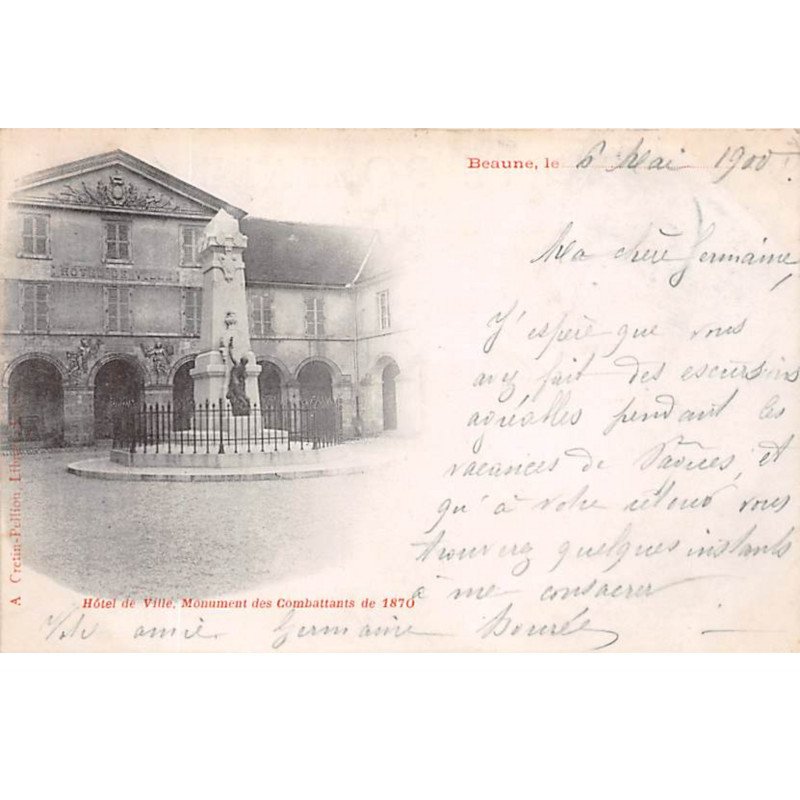 Beaune, le 6 Mai 1900.
Ma chère Germaine,
J'espère que vous
avez fait des escursions
agréables pendant les
vacances de Pâques, et
qu'à votre retour vous
trouverez quelques instants
à me consacrer
HÔTEL DE VILLE
A Cretin-Pellion, Libr
Hôtel de Ville, Monument des Combattants de 1870
Votre amie Germaine Bourée